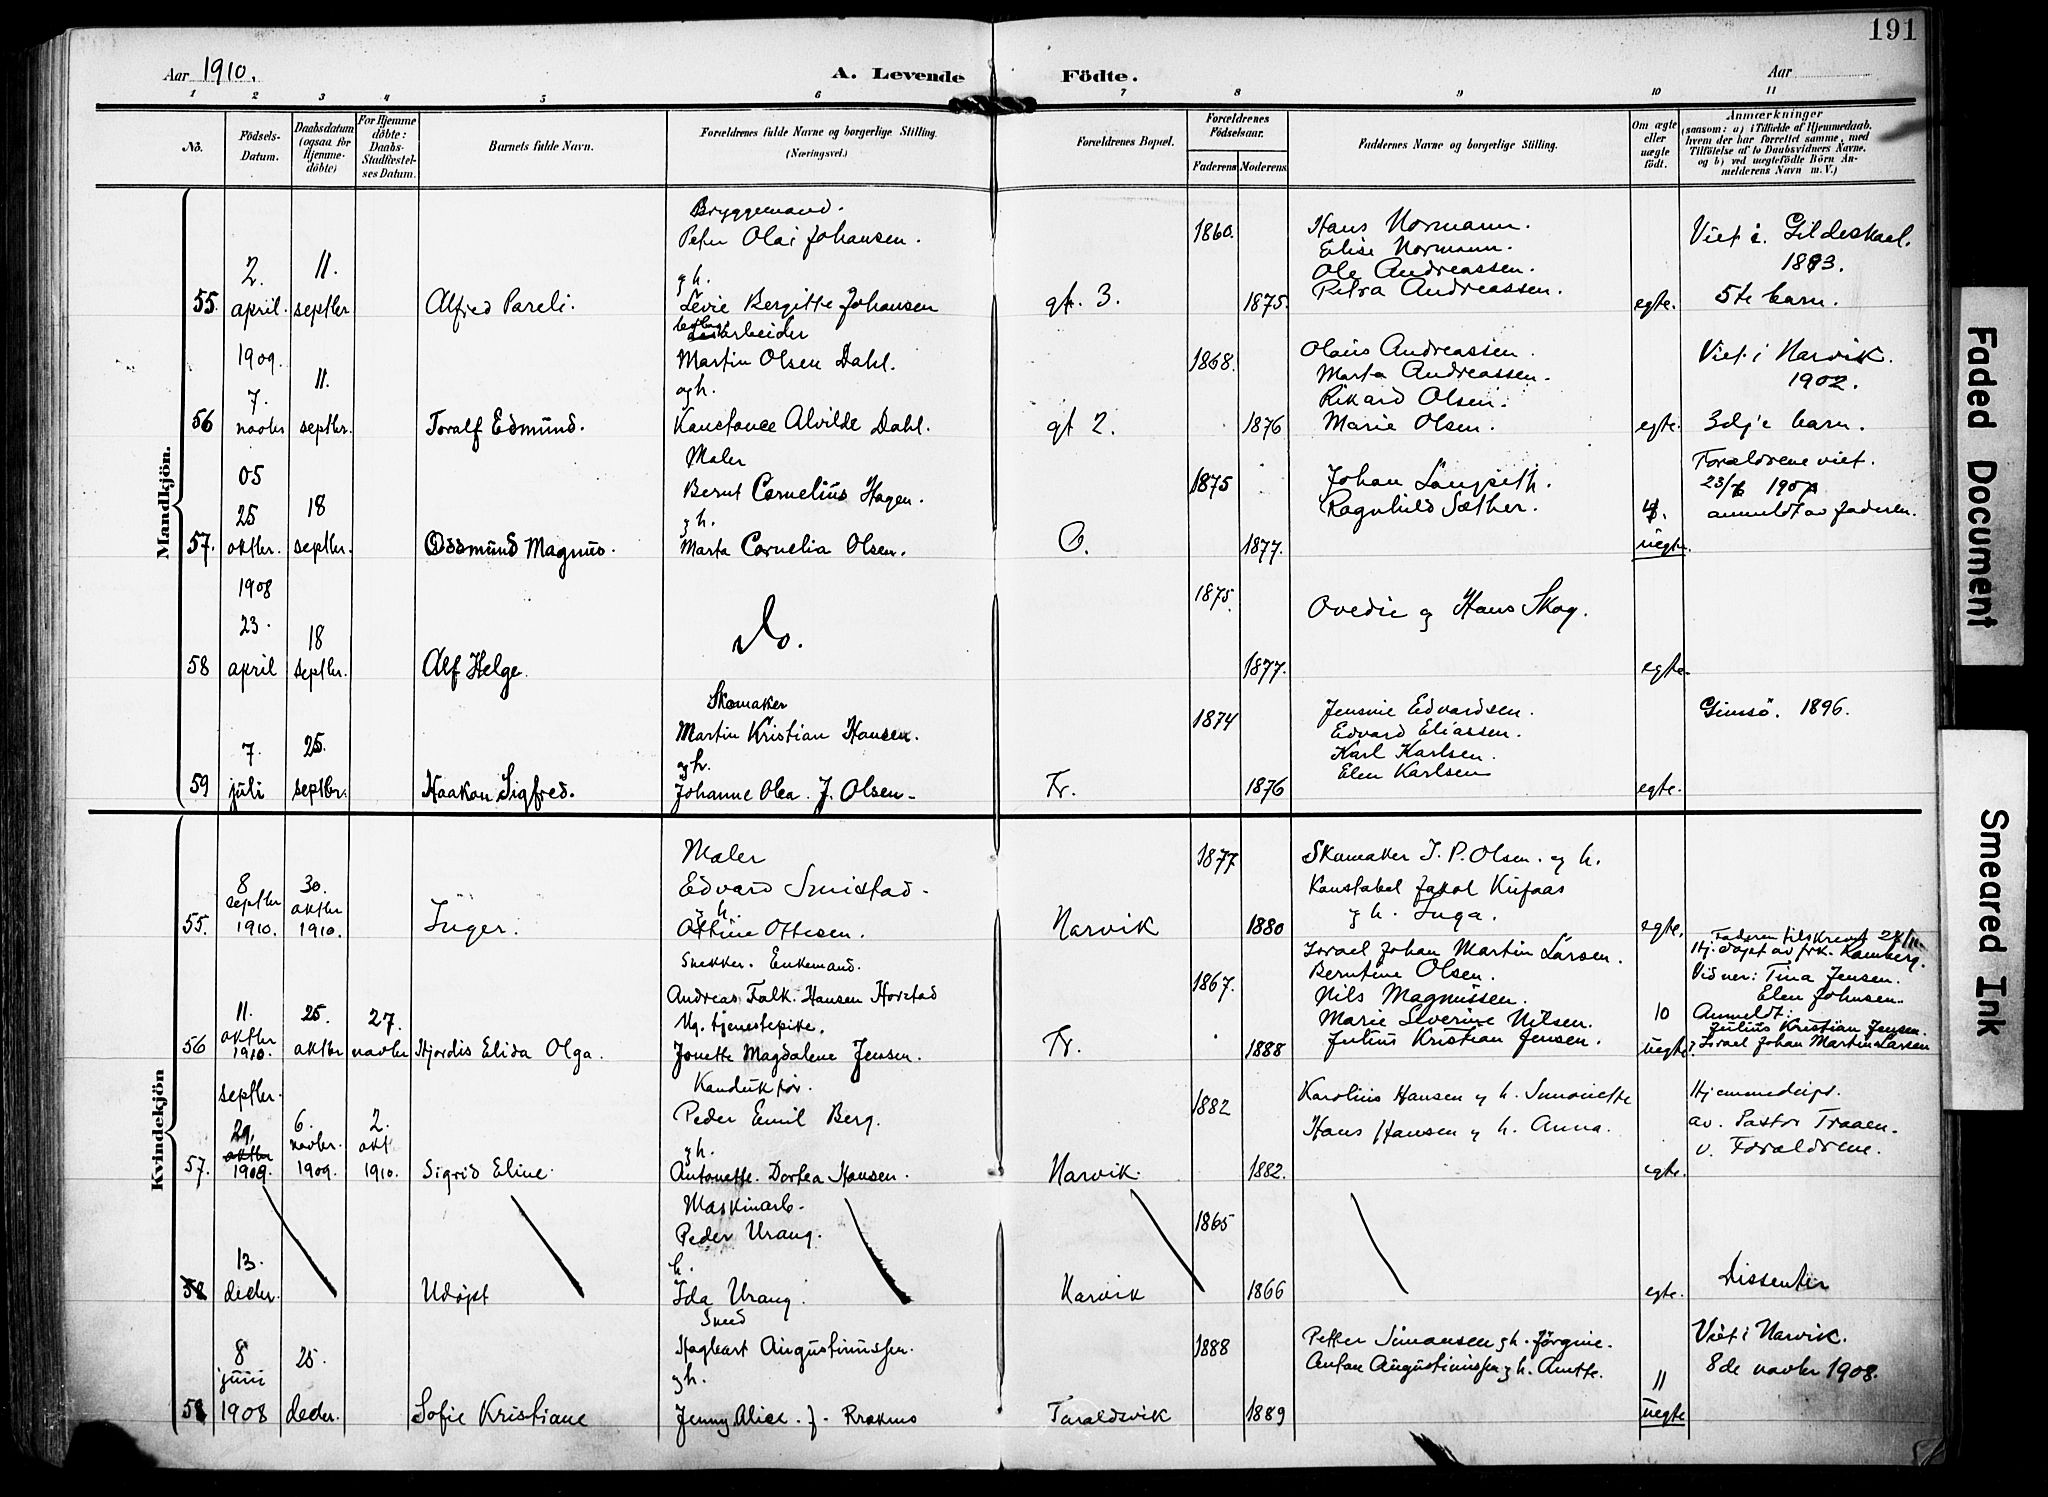 191
Aar 1910.
A. Levende Födte.
Aar
1 2 3 4 5 6 7 8 9 10 11
No.
Födsels-Datum.
Daabsdatum (ogsaa for Hjemme-döbte)
For Hjemme döbte: Daabs-Stadfæstel-ses Datum.
Barnets fulde Navn.
Forældrenes fulde Navne og borgerlige Stilling.
(Næringsvei.)
Forældrenes Bopæl.
Forældrenes Födselsaar.
Faderens Moderens
Faddernes Navne og borgerlige Stilling.
Om ægte eller uægte födt.
Anmærkninger
(saasom: a) i Tilfælde af Hjemmedaab.
hvem der har forrettet samme, med
Tilföielse af to Daabsvidners Navne.
og b) ved uægtefödte Börn An-
melderens Navn m. V.)
Mandkjön.
55. 2. april. 11. septbr Alfred Pareli.
Bryggemand.
Peter Olai Johansen.
og h.
Levie Bergitte Johansen
gt. 3. 1860. 1875.
Hans Normann.
Elise Normann.
Ole Andreassen.
Petra Andreassen.
egte.
Viet i Gildeskaal.
1893.
5te barn.
56 1909. 7. novbr 11. septbr. Toralf Edmund.
arbeider
Martin Olsen Dahl.
og h.
Konstance Alvilde Dahl.
gt 2. 1868. 1876
Olaus Andreassen.
Marta Andreassen.
Rikard Olsen.
Marie Olsen.
egte.
Viet i Narvik.
1902.
3dje barn.
57. 05 25 oktbr. 18 septbr. Oddmund Magnus.
Maler
Bernt Cornelius Hagen.
og h.
Marta Cornelia Olsen.
O. 1875 1877.
Johan Langseth.
Ragnhild Sæther.
uegte.
Forældrene viet.
23/6 1907
anmeldt av faderen.
58 1908 23. april 18 septbr. Alf Helge.
do.
1875. 1877.
Ovedie og Hans Skog.
egte.
59 7. juli 25. septbr. Haakon Sigfred.
Skomaker
Martin Kristian Hansen.
og h.
Johanne Olea. J. Olsen.
Fr. 1874 1876
Jensvie Edvardsen.
Edvard Eliassen.
Karl Karlsen.
Elen Karlsen
egte.
Gimsö. 1896.
Kvindekjön
55. 8 septbr 1910. 30. oktbr 1910. Inger.
Maler
Edvard Smistad.
og h.
Othine Ottesen.
Narvik 1877 1880
Skomaker J. P. Olsen. og h.
Konstabel Jakob Kufaas
og h. Inga.
egte.
56 11. oktbr 1910. 25. oktbr 27. novbr Hjordis Elida Olga.
Snekker. Enkemand.
Andreas Falk. Hansen Horstad
Ug. tjenestepike.
Jonette Magdalene Jensen.
Fr. 1867. 1888
Israel Johan Martin Larsen.
Berntine Olsen.
Nils Magnussen.
Marie Severine Nilsen.
Julius Kristian Jensen.
10 uegte
Faderen tilskrevet 28/11.
Hj. döpt av frk. Ramberg.
Vidner: Tina Jensen.
Elen Johnsen.
Anmeldt:
Julius Kristian Jensen.
og Israel Johan Martin Larsen
57. septbr. 29. oktbr 1909 6. novbr. 1909. 2. okt. 1910. Sigrid Eline
Konduktör.
Peder Emil Berg.
og h.
Antonette. Dortea Hansen.
Narvik. 1882 1882.
Karolius Hansen og h. Simonette
Hans Hansen og h. Anna.
egte.
Hjemmedöpt.
av. Pastor Traaen.
v. Forældrene.
58 13. decbr. Udöpt
Maskinarb.
Peder Urang.
h.
Ida Urang.
Narvik 1865 1866
egte.
Dissenter
58 8 juni 1908 25. decbr. Sofie Kristiane
Smed
Hagbart Augustinussen.
og h.
Jenny Alice. J. Kraknes
Taraldsvik 1888 1889
Petter Simonsen og h. Jörgine.
Anton Augustinussen og h. Anette.
11 uegte
Viet i Narvik.
8de novbr 1908.
Faded Document
Smeared Ink